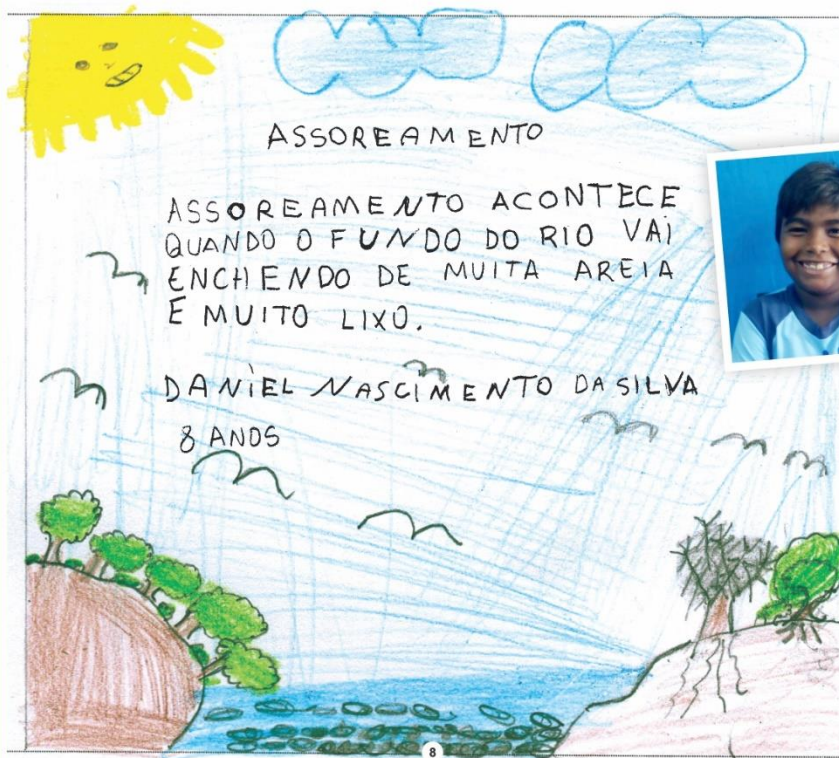 ASSOREAMENTO
ASSOREAMENTO ACONTECE
QUANDO O FUNDO DO RIO VAI
ENCHENDO DE MUITA AREIA
E MUITO LIXO.
DANIEL NASCIMENTO DA SILVA
8 ANOS
8